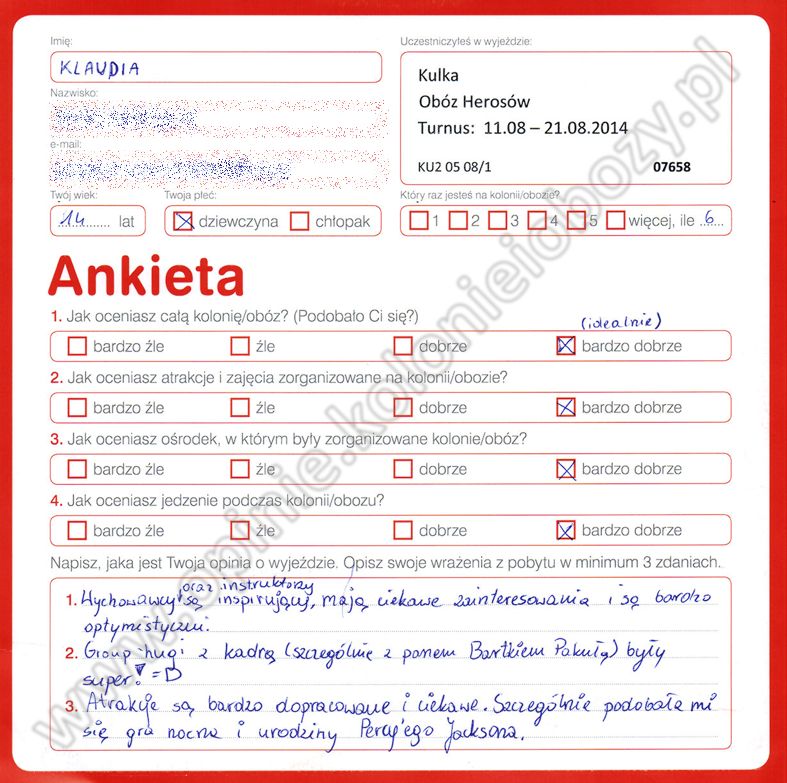 Imię:
KLAUDIA
Nazwisko:
e-mail:
Twój wiek:
14 lat
Twoja płeć:
dziewczyna chłopak
Uczestniczyłeś w wyjeździe:
Kulka
Obóz Herosów
Turnus: 11.08 – 21.08.2014
KU2 05 08/1 07658
Który raz jesteś na kolonii/obozie?
1 2 3 4 5 więcej, ile 6
Ankieta
1. Jak oceniasz całą kolonię/obóz? (Podobało Ci się?)
(idealnie)
bardzo źle źle dobrze bardzo dobrze
2. Jak oceniasz atrakcje i zajęcia zorganizowane na kolonii/obozie?
bardzo źle źle dobrze bardzo dobrze
3. Jak oceniasz ośrodek, w którym były zorganizowane kolonie/obóz?
bardzo źle źle dobrze bardzo dobrze
4. Jak oceniasz jedzenie podczas kolonii/obozu?
bardzo źle źle dobrze bardzo dobrze
Napisz, jaka jest Twoja opinia o wyjeździe. Opisz swoje wrażenia z pobytu w minimum 3 zdaniach.
oraz instruktorzy
1. Wychowawcy są inspirujący, mają ciekawe zainteresowania i są bardzo
optymistyczni.
2. Group hugi z kadrą (szczególnie z panem Bartkiem Pakułą) były
super! =D
3. Atrakcje są bardzo dopracowane i ciekawe. Szczególnie podobała mi
się gra nocna i urodziny Percy'ego Jacksona.
www.opinie.kolonieiobozy.pl